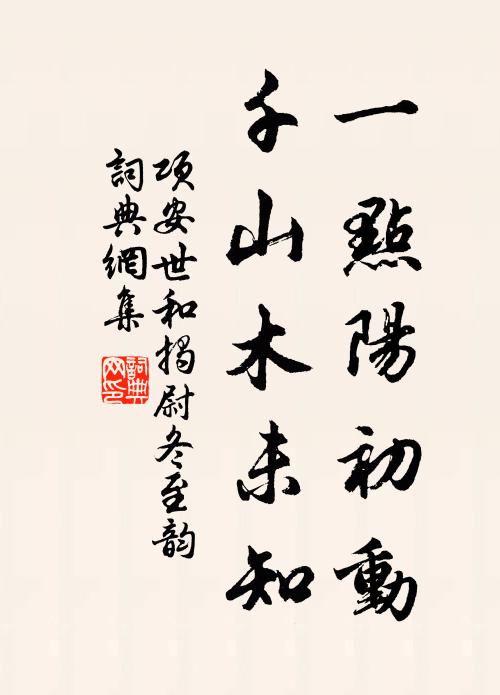 一點陽初動
千山木未知
項安世和揭尉冬至韵
詞典網集
詞典网印